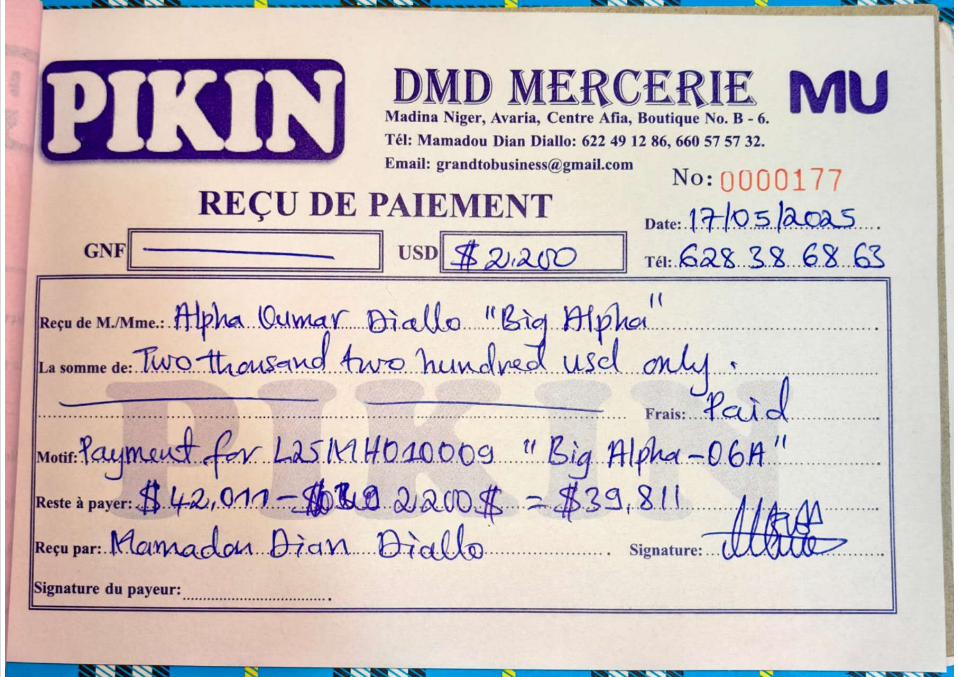 PIKIN
DMD MERCERIE
MU
Madina Niger, Avaria, Centre Afia, Boutique No. B - 6.
Tél: Mamadou Dian Diallo: 622 49 12 86, 660 57 57 32.
Email: grandtobusiness@gmail.com
No: 0000177
REÇU DE PAIEMENT
Date: 17/05/2025
GNF
USD $2.200
Tél: 628 38 68 63
Reçu de M./Mme.: Alpha Oumar Diallo "Big Alpha"
La somme de: Two thousand two hundred usd only.
Frais: Paid
PIKIN
Motif: Payment for L25MH010009 "Big Alpha-06A"
Reste à payer: $42,011 - 2200$ = $39,811
Reçu par: Mamadou Dian Diallo
Signature:
Signature du payeur: